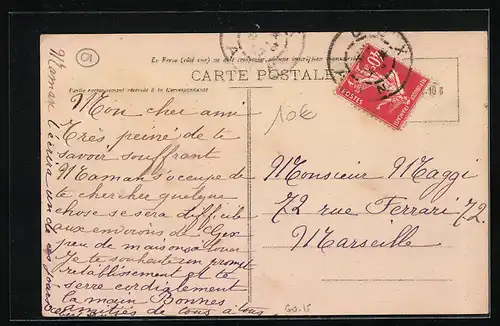 Le Verso (côté vue) ne doit comporter aucune inscription
CARTE POSTALE
Partie exclusivement réservée à la Correspondance
GEX
40c
POSTES
REPUBLIQUE FRANÇAISE
10€
Mon cher ami
Très peiné de te
savoir souffrant
Maman s'occupe de
te chercher quelque
chose se sera difficile
aux environs de Gex
peu de maisons a louer
Je te souhaite un prompt
rétablissement et te
serre cordialement
la main Bonnes
amitiés de tous à tous
Maman t'écrira un de ces jours
Monsieur Maggi
72 rue Ferrari 72
Marseille
GO-15